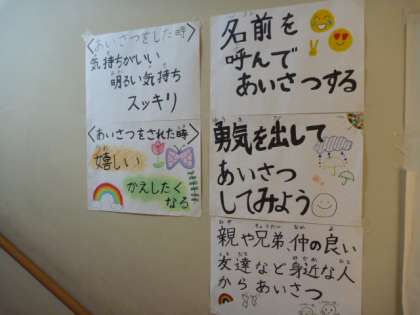 〈あいさつをした時〉
気持ちがいい
明るい気持ち
スッキリ
〈あいさつをされた時〉
嬉しい
かえしたく
なる
名前を
呼んで
あいさつする
勇気を出して
あいさつ
してみよう
親や兄弟、仲の良い
友達など身近な人
からあいさつ